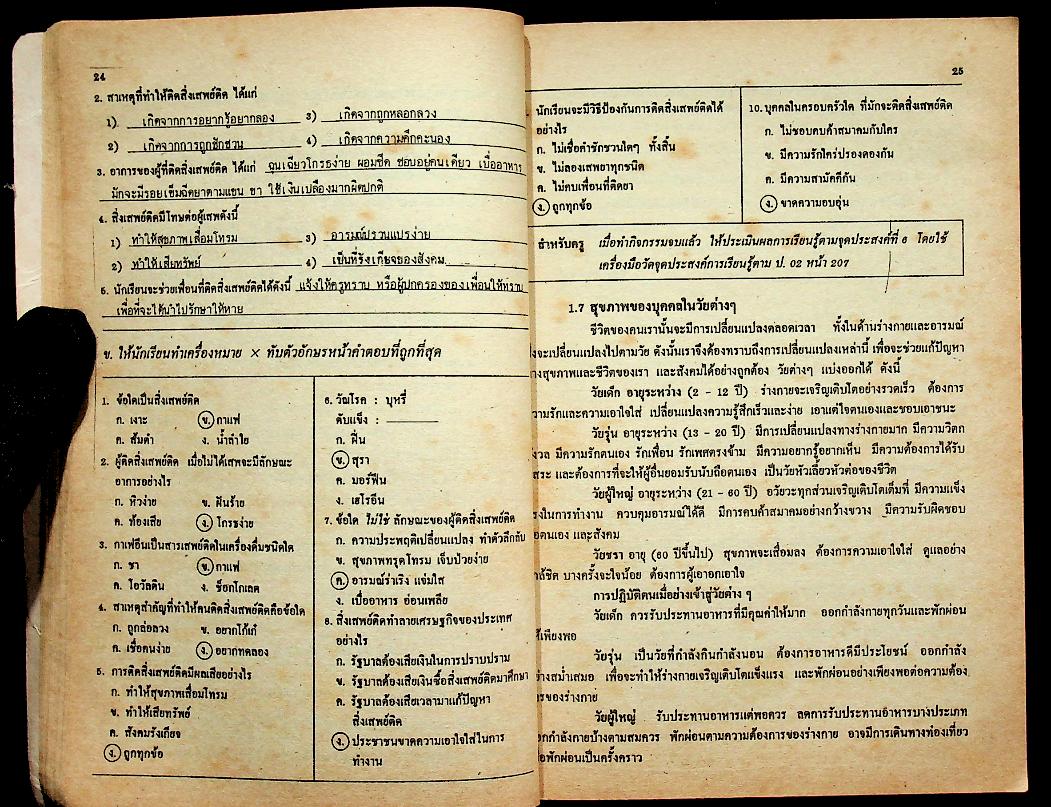 24
2. สาเหตุที่ทำให้ติดสิ่งเสพย์ติด ได้แก่
1) เกิดจากการอยากรู้อยากลอง 3) เกิดจากถูกหลอกลวง
2) เกิดจากการถูกชักชวน 4) เกิดจากความคึกคะนอง
3. อาการของผู้ที่ติดสิ่งเสพย์ติด ได้แก่ ฉุนเฉียวโกรธง่าย ผอมซีด ชอบอยู่คนเดียว เบื่ออาหาร
มักจะมีรอยเข็มฉีดยาตามแขน ขา ใช้เงินเปลืองมากผิดปกติ
4. สิ่งเสพย์ติดมีโทษต่อผู้เสพดังนี้
1) ทำให้สุขภาพเสื่อมโทรม 3) อารมณ์ปรวนแปรง่าย
2) ทำให้เสียทรัพย์ 4) เป็นที่รังเกียจของสังคม
5. นักเรียนจะช่วยเพื่อนที่ติดสิ่งเสพย์ติดได้ดังนี้ แจ้งให้ครูทราบ หรือผู้ปกครองของเพื่อนให้ทราบ
เพื่อที่จะได้นำไปรักษาให้หาย
ข. ให้นักเรียนทำเครื่องหมาย × ทับตัวอักษรหน้าคำตอบที่ถูกที่สุด
1. ข้อใดเป็นสิ่งเสพย์ติด
ก. เงาะ ข. กาแฟ
ค. ส้มตำ ง. น้ำลำไย
2. ผู้ติดสิ่งเสพย์ติด เมื่อไม่ได้เสพจะมีลักษณะ
อาการอย่างไร
ก. หิวง่าย ข. ฝันร้าย
ค. ท้องเสีย ง. โกรธง่าย
3. กาเฟอีนเป็นสารเสพย์ติดในเครื่องดื่มชนิดใด
ก. ชา ข. กาแฟ
ค. โอวัลติน ง. ช็อกโกเลต
4. สาเหตุสำคัญที่ทำให้คนติดสิ่งเสพย์ติดคือข้อใด
ก. ถูกล่อลวง ข. อยากโก้เก๋
ค. เชื่อคนง่าย ง. อยากทดลอง
5. การติดสิ่งเสพย์ติดมีผลเสียอย่างไร
ก. ทำให้สุขภาพเสื่อมโทรม
ข. ทำให้เสียทรัพย์
ค. สังคมรังเกียจ
ง. ถูกทุกข้อ
6. วัณโรค : บุหรี่
ตับแข็ง :
ก. ฝิ่น
ข. สุรา
ค. มอร์ฟีน
ง. เฮโรอีน
7. ข้อใด ไม่ใช่ ลักษณะของผู้ติดสิ่งเสพย์ติด
ก. ความประพฤติเปลี่ยนแปลง ทำตัวลึกลับ
ข. สุขภาพทรุดโทรม เจ็บป่วยง่าย
ค. อารมณ์ร่าเริง แจ่มใส
ง. เบื่ออาหาร อ่อนเพลีย
8. สิ่งเสพย์ติดทำลายเศรษฐกิจของประเทศ
อย่างไร
ก. รัฐบาลต้องเสียเงินในการปราบปราม
ข. รัฐบาลต้องเสียเงินซื้อสิ่งเสพย์ติดมาศึกษา
ค. รัฐบาลต้องเสียเวลามาแก้ปัญหา
สิ่งเสพย์ติด
ง. ประชาชนขาดความเอาใจใส่ในการ
ทำงาน
25
นักเรียนจะมีวิธีป้องกันการติดสิ่งเสพย์ติดได้
อย่างไร
ก. ไม่เชื่อคำชักชวนใดๆ ทั้งสิ้น
ข. ไม่ลองเสพยาทุกชนิด
ค. ไม่คบเพื่อนที่ติดยา
ง. ถูกทุกข้อ
10. บุคคลในครอบครัวใด ที่มักจะติดสิ่งเสพย์ติด
ก. ไม่ชอบคบค้าสมาคมกับใคร
ข. มีความรักใคร่ปรองดองกัน
ค. มีความสามัคคีกัน
ง. ขาดความอบอุ่น
สำหรับครู เมื่อทำกิจกรรมจบแล้ว ให้ประเมินผลการเรียนรู้ตามจุดประสงค์ที่ 6 โดยใช้
เครื่องมือวัดจุดประสงค์การเรียนรู้ตาม ป. 02 หน้า 207
1.7 สุขภาพของบุคคลในวัยต่างๆ
ชีวิตของคนเรานั้นจะมีการเปลี่ยนแปลงตลอดเวลา ทั้งในด้านร่างกายและอารมณ์
จะเปลี่ยนแปลงไปตามวัย ดังนั้นเราจึงต้องทราบถึงการเปลี่ยนแปลงเหล่านี้ เพื่อจะช่วยแก้ปัญหา
างสุขภาพและชีวิตของเรา และสังคมได้อย่างถูกต้อง วัยต่างๆ แบ่งออกได้ ดังนี้
วัยเด็ก อายุระหว่าง (2 - 12 ปี) ร่างกายจะเจริญเติบโตอย่างรวดเร็ว ต้องการ
วามรักและความเอาใจใส่ เปลี่ยนแปลงความรู้สึกเร็วและง่าย เอาแต่ใจตนเองและชอบเอาชนะ
วัยรุ่น อายุระหว่าง (13 - 20 ปี) มีการเปลี่ยนแปลงทางร่างกายมาก มีความวิตก
งวล มีความรักตนเอง รักเพื่อน รักเพศตรงข้าม มีความอยากรู้อยากเห็น มีความต้องการได้รับ
สระ และต้องการที่จะให้ผู้อื่นยอมรับนับถือตนเอง เป็นวัยหัวเลี้ยวหัวต่อของชีวิต
วัยผู้ใหญ่ อายุระหว่าง (21 - 60 ปี) อวัยวะทุกส่วนเจริญเติบโตเต็มที่ มีความแข็ง
รงในการทำงาน ควบคุมอารมณ์ได้ดี มีการคบค้าสมาคมอย่างกว้างขวาง มีความรับผิดชอบ
อตนเอง และสังคม
วัยชรา อายุ (60 ปีขึ้นไป) สุขภาพจะเสื่อมลง ต้องการความเอาใจใส่ ดูแลอย่าง
ล้ชิด บางครั้งจะใจน้อย ต้องการผู้เอาอกเอาใจ
การปฏิบัติตนเมื่อย่างเข้าสู่วัยต่าง ๆ
วัยเด็ก ควรรับประทานอาหารที่มีคุณค่าให้มาก ออกกำลังกายทุกวันและพักผ่อน
ห้เพียงพอ
วัยรุ่น เป็นวัยที่กำลังกินกำลังนอน ต้องการอาหารดีมีประโยชน์ ออกกำลัง
ย่างสม่ำเสมอ เพื่อจะทำให้ร่างกายเจริญเติบโตแข็งแรง และพักผ่อนอย่างเพียงพอต่อความต้อง
ารของร่างกาย
วัยผู้ใหญ่ รับประทานอาหารแต่พอควร ลดการรับประทานอาหารบางประเภท
อกกำลังกายบ้างตามสมควร พักผ่อนตามความต้องการของร่างกาย อาจมีการเดินทางท่องเที่ยว
อพักผ่อนเป็นครั้งคราว